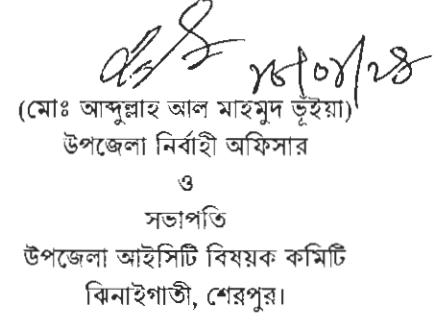 (মোঃ আব্দুল্লাহ আল মাহমুদ ভূঁইয়া)
উপজেলা নির্বাহী অফিসার
ও
সভাপতি
উপজেলা আইসিটি বিষয়ক কমিটি
ঝিনাইগাতী, শেরপুর।